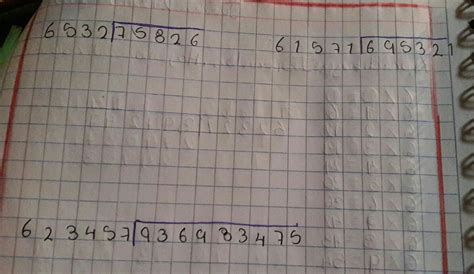 6532⟌75826
61571⟌695321
623457⟌936983475